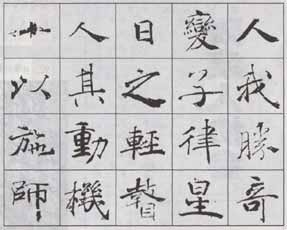 人我勝奇
變律星
日之輕
人其動機
以施師